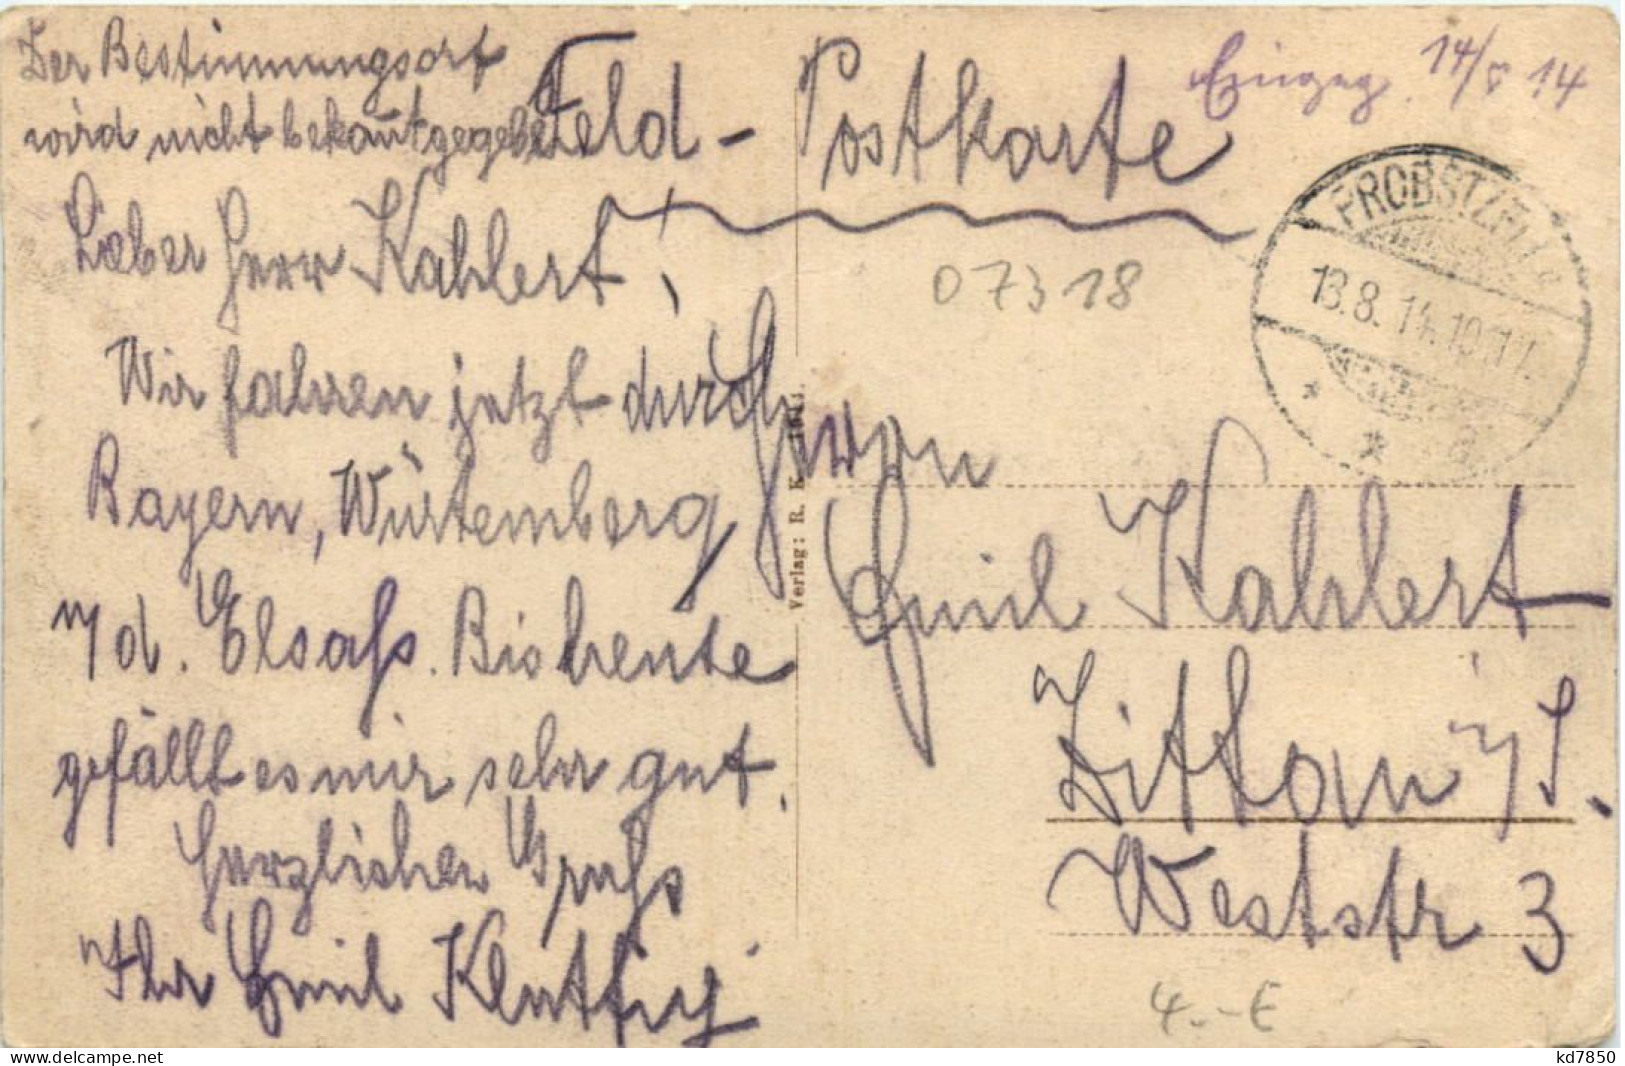 Der Bestimmungsort
wird nicht bekantgegeben
Feld-Postkarte
Eingeg. 14/8 14
Lieber Herr Kahlert!
PROBSTZELLA
13.8.14.10-11V.
* * a
07318
Wir fahren jetzt durch
Bayern, Würtemberg
n/d. Elsaß. Bis heute
gefällt es mir sehr gut.
Herzlichen Gruß
Ihr Emil
Verlag: R. K.
Herrn
Emil Kahlert
Zittau i/S.
Weststr 3
4.-E
delcampe.net
kd7850